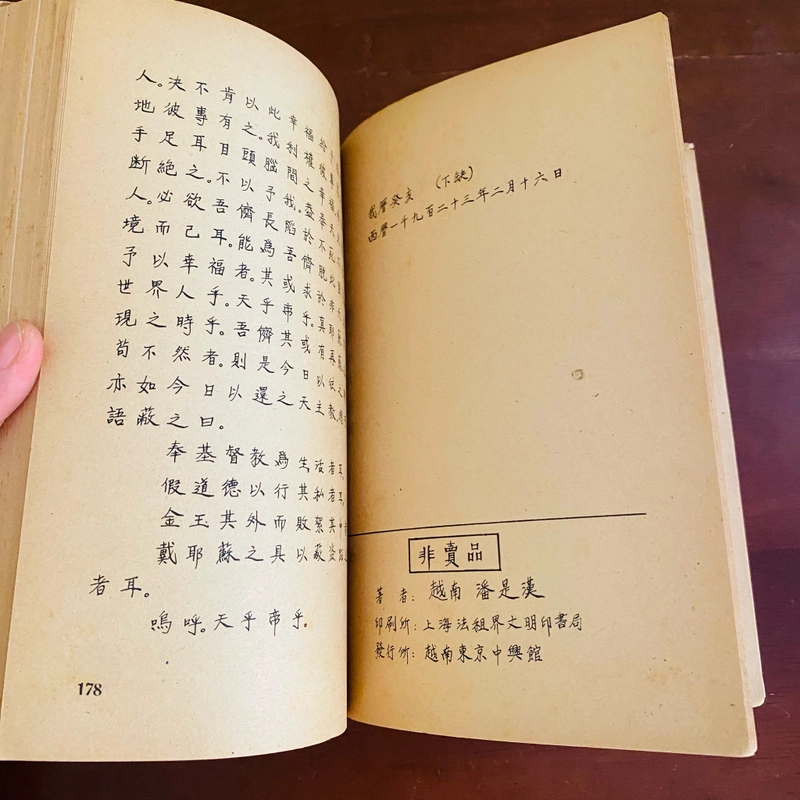 人。決不肯以此幸福給
地彼專有之。我利權
手足耳目頭腦間之幸
斷絕之。不以予我。盡奉
人。必欲吾儕長陷於不
境而己耳。能為吾儕脫於
予以幸福者。其或求乎
世界人乎。天乎帝乎。真
現之時乎。吾儕其或有再
苟不然者。則是今日以
亦如今日以還之天主教
語蔽之曰。
奉基督教為生活者耳
假道德以行其私者耳
金玉其外而敗絮其中
戴耶蘇之具以蔽盜
者耳。
嗚呼。天乎帝乎。
178
(下缺)
我曆癸亥
西曆一千九百二十三年二月十六日
非賣品
著者: 越南 潘是漢
印刷所: 上海法租界文明印書局
發行所: 越南東京中興館